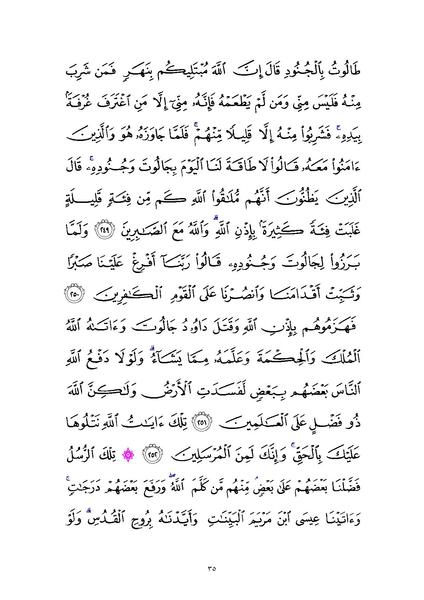 طَالُوتُ بِالْجُنُودِ قَالَ إِنَّ اللَّهَ مُبْتَلِيكُم بِنَهَرٍ فَمَن شَرِبَ
مِنْهُ فَلَيْسَ مِنِّي وَمَن لَّمْ يَطْعَمْهُ فَإِنَّهُۥ مِنِّيٓ إِلَّا مَنِ اغْتَرَفَ غُرْفَةًۢ
بِيَدِهِۦۚ فَشَرِبُوا۟ مِنْهُ إِلَّا قَلِيلًا مِّنْهُمْۚ فَلَمَّا جَاوَزَهُۥ هُوَ وَالَّذِينَ
ءَامَنُوا۟ مَعَهُۥ قَالُوا۟ لَا طَاقَةَ لَنَا الْيَوْمَ بِجَالُوتَ وَجُنُودِهِۦۚ قَالَ
الَّذِينَ يَظُنُّونَ أَنَّهُم مُّلَٰقُوا۟ اللَّهِ كَم مِّن فِئَةٍ قَلِيلَةٍ
غَلَبَتْ فِئَةً كَثِيرَةًۢ بِإِذْنِ اللَّهِۗ وَاللَّهُ مَعَ الصَّٰبِرِينَ ٢٤٩ وَلَمَّا
بَرَزُوا۟ لِجَالُوتَ وَجُنُودِهِۦ قَالُوا۟ رَبَّنَآ أَفْرِغْ عَلَيْنَا صَبْرًا
وَثَبِّتْ أَقْدَامَنَا وَانصُرْنَا عَلَى الْقَوْمِ الْكَٰفِرِينَ ٢٥٠
فَهَزَمُوهُم بِإِذْنِ اللَّهِ وَقَتَلَ دَاوُۥدُ جَالُوتَ وَءَاتَىٰهُ اللَّهُ
الْمُلْكَ وَالْحِكْمَةَ وَعَلَّمَهُۥ مِمَّا يَشَآءُۗ وَلَوْلَا دَفْعُ اللَّهِ
النَّاسَ بَعْضَهُم بِبَعْضٍ لَّفَسَدَتِ الْأَرْضُ وَلَٰكِنَّ اللَّهَ
ذُو فَضْلٍ عَلَى الْعَٰلَمِينَ ٢٥١ تِلْكَ ءَايَٰتُ اللَّهِ نَتْلُوهَا
عَلَيْكَ بِالْحَقِّۚ وَإِنَّكَ لَمِنَ الْمُرْسَلِينَ ٢٥٢ ۞ تِلْكَ الرُّسُلُ
فَضَّلْنَا بَعْضَهُمْ عَلَىٰ بَعْضٍۘ مِّنْهُم مَّن كَلَّمَ اللَّهُۖ وَرَفَعَ بَعْضَهُمْ دَرَجَٰتٍۚ
وَءَاتَيْنَا عِيسَى ابْنَ مَرْيَمَ الْبَيِّنَٰتِ وَأَيَّدْنَٰهُ بِرُوحِ الْقُدُسِۗ وَلَوْ
٣٥